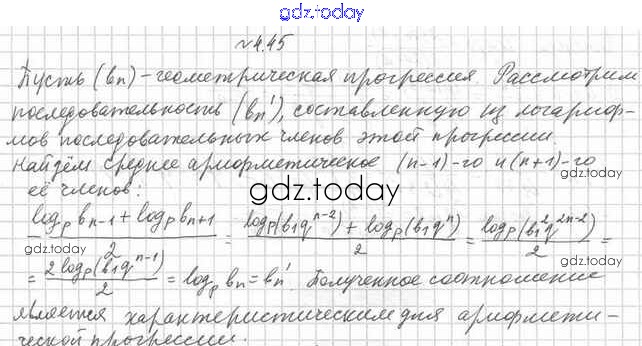 gdz.today
№4.45
Пусть (bn) – геометрическая прогрессия. Рассмотрим
последовательность (bn'), составленную из логариф-
мов последовательных членов этой прогрессии.
Найдём среднее арифметическое (n-1)-го и (n+1)-го
её членов:
gdz.today
gdz.today
(log_p b_{n-1} + log_p b_{n+1})/2 = (log_p(b_1q^{n-2}) + log_p(b_1q^n))/2 = log_p(b_1^2q^{2n-2})/2 =
gdz.today
gdz.today
= 2 log_p(b_1q^{n-1})/2 = log_p b_n = b_n'. Полученное соотношение
является характеристическим для арифмети-
ческой прогрессии.